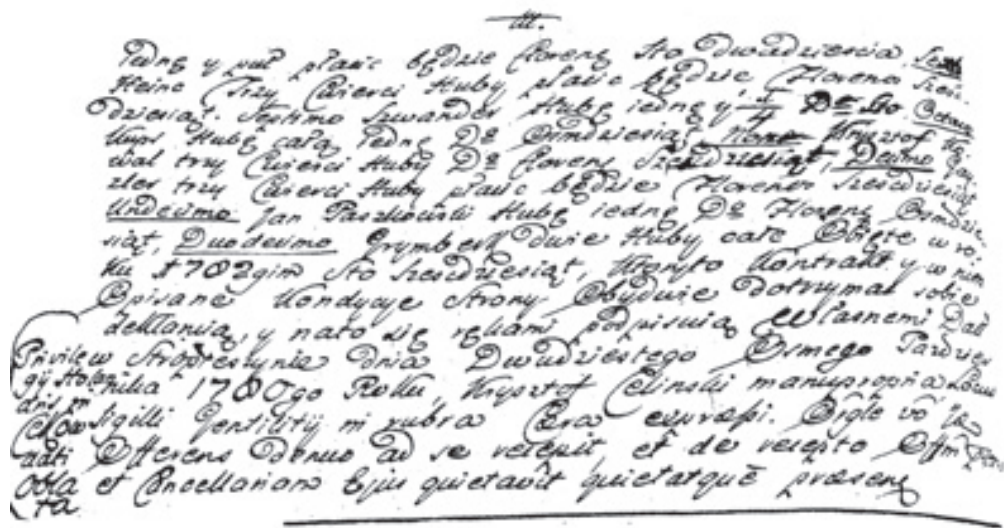 Jedną y puł płacic będzie floreny Sto Dwadziescia,
Heine Trzy Cwierci Huby płacic będzie Florenow Szes-
dziesiąt. Septimo Szwander Hubę iedną y 1/4 D° Sto. Octavo
Hubę całą Jedną D° Osmdziesiąt, Nono Krysztof
trzy Cwierci Huby D° floreny Szescdziesiąt, Decimo
trzy Cwierci Huby płacic będzie Florenow Szescdziesiąt
Undecimo Jan Paszkowski Hubę iedną D° Floreny Osmdzie-
siąt, Duodecimo Grymberg dwie Huby całe Objęte w ro-
ku 1782gim Sto Szescdziesiąt, Kontrakt y w nim
Opisane Kondycye Strony Obydwie dotrzymac sobie
deklaruią, y nato się rękami podpisuią własnemi Datt
w Stropieszynie Dnia Dwudziestego Osmego Pazdzier-
nika 1780go Roku, Krysztof Celinski manupropria Locus
Sigilli Gentilitij in rubra Cera expressi.
Offerens Denuo ad se recepit, et de recepto Offm
et Cancellariam Ejus quietavit quietatque praesens
Privile
gij
obla
ta